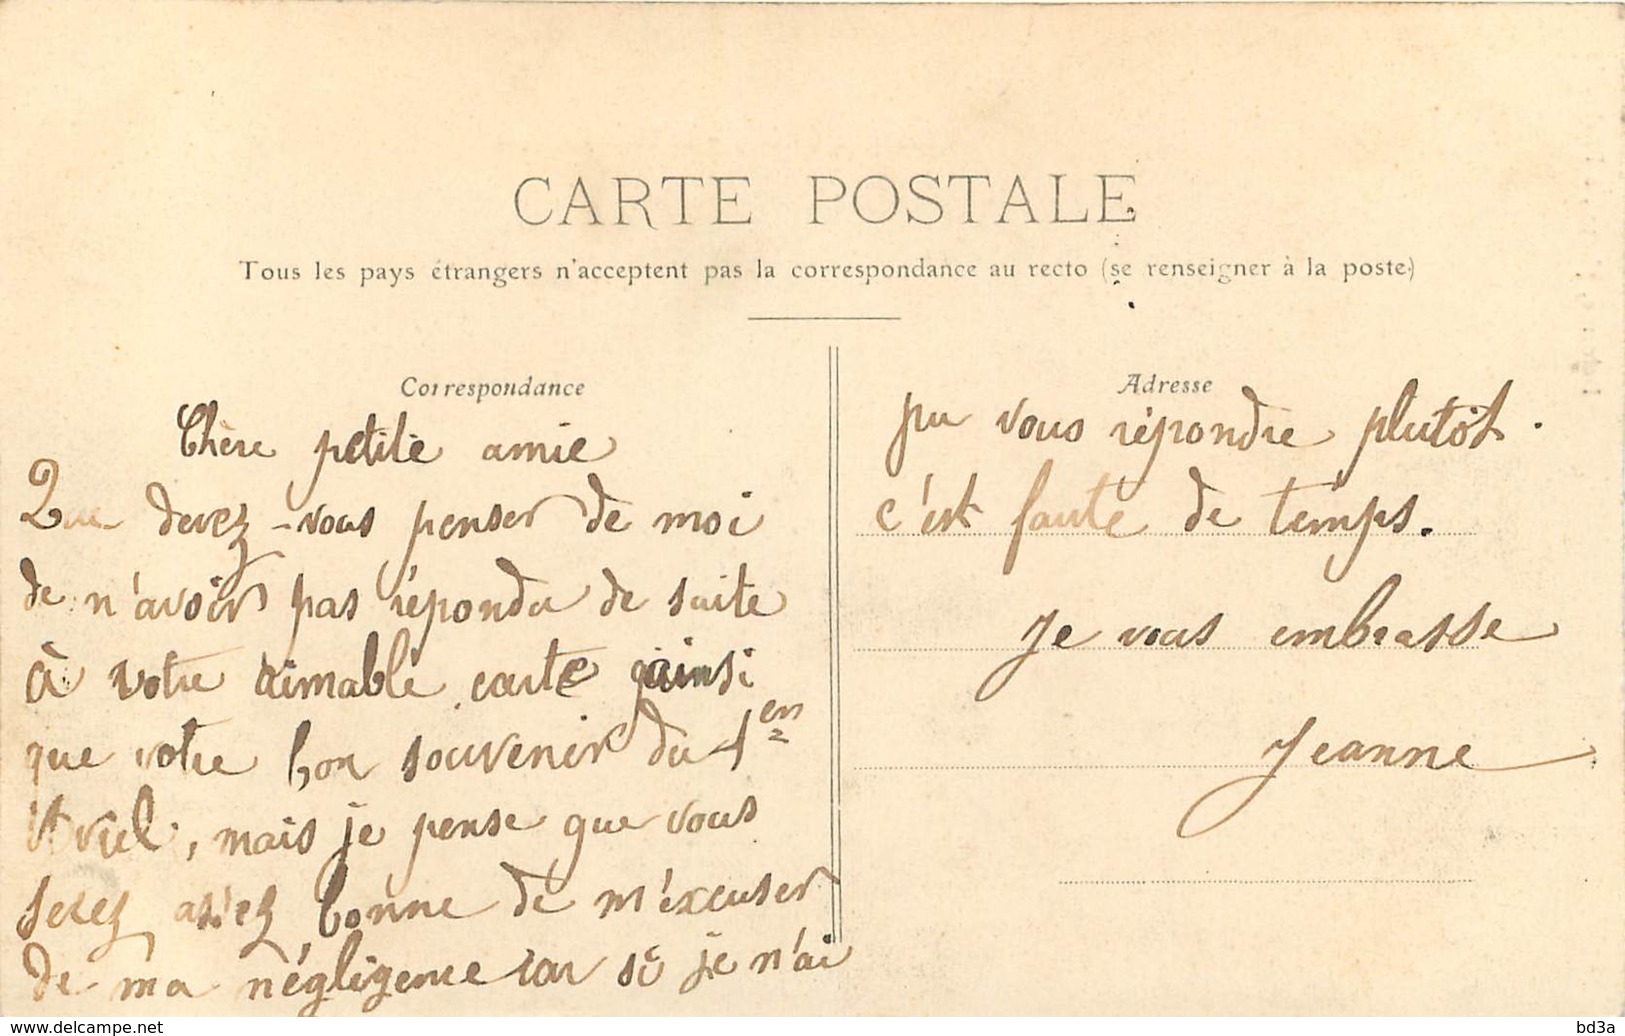 CARTE POSTALE
Tous les pays étrangers n'acceptent pas la correspondance au recto (se renseigner à la poste)
Correspondance
Chère petite amie
Que devez-vous penser de moi
de n'avoir pas répondu de suite
à votre aimable carte ainsi
que votre bon souvenir du 1en
Avril, mais je pense que vous
serez assez bonne de m'excuser
de ma négligence car si je n'ai
Adresse
pu vous répondre plutôt.
c'est faute de temps.
Je vous embrasse
Jeanne
www.delcampe.net
bd3a